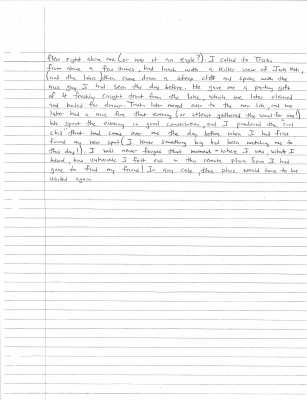 flew right above me (or was it an eagle?). I called to Trisha
from above a few times, had lunch with a killer view of
(and the lake) then came down a steep cliff and spoke with the
nice guy I had seen the day before. He gave me a parting gift
of 4 freshly caught trout from the lake, which we later cleaned
and boiled for dinner. Trisha later moved over to the new site, and we
later had a nice fire that evening (or at least gathered the wood for one!)
We spent the evening in good conversation, and I pondered the cool
chill that had come over me the day before when I had first
found my new spot (I swear something big had been watching me to
this day!). I will never forget that moment - where I was, what I
heard, how vulnerable I felt out in this remote place I had
gone to find my friend! In any case, this place would have to be
visited again